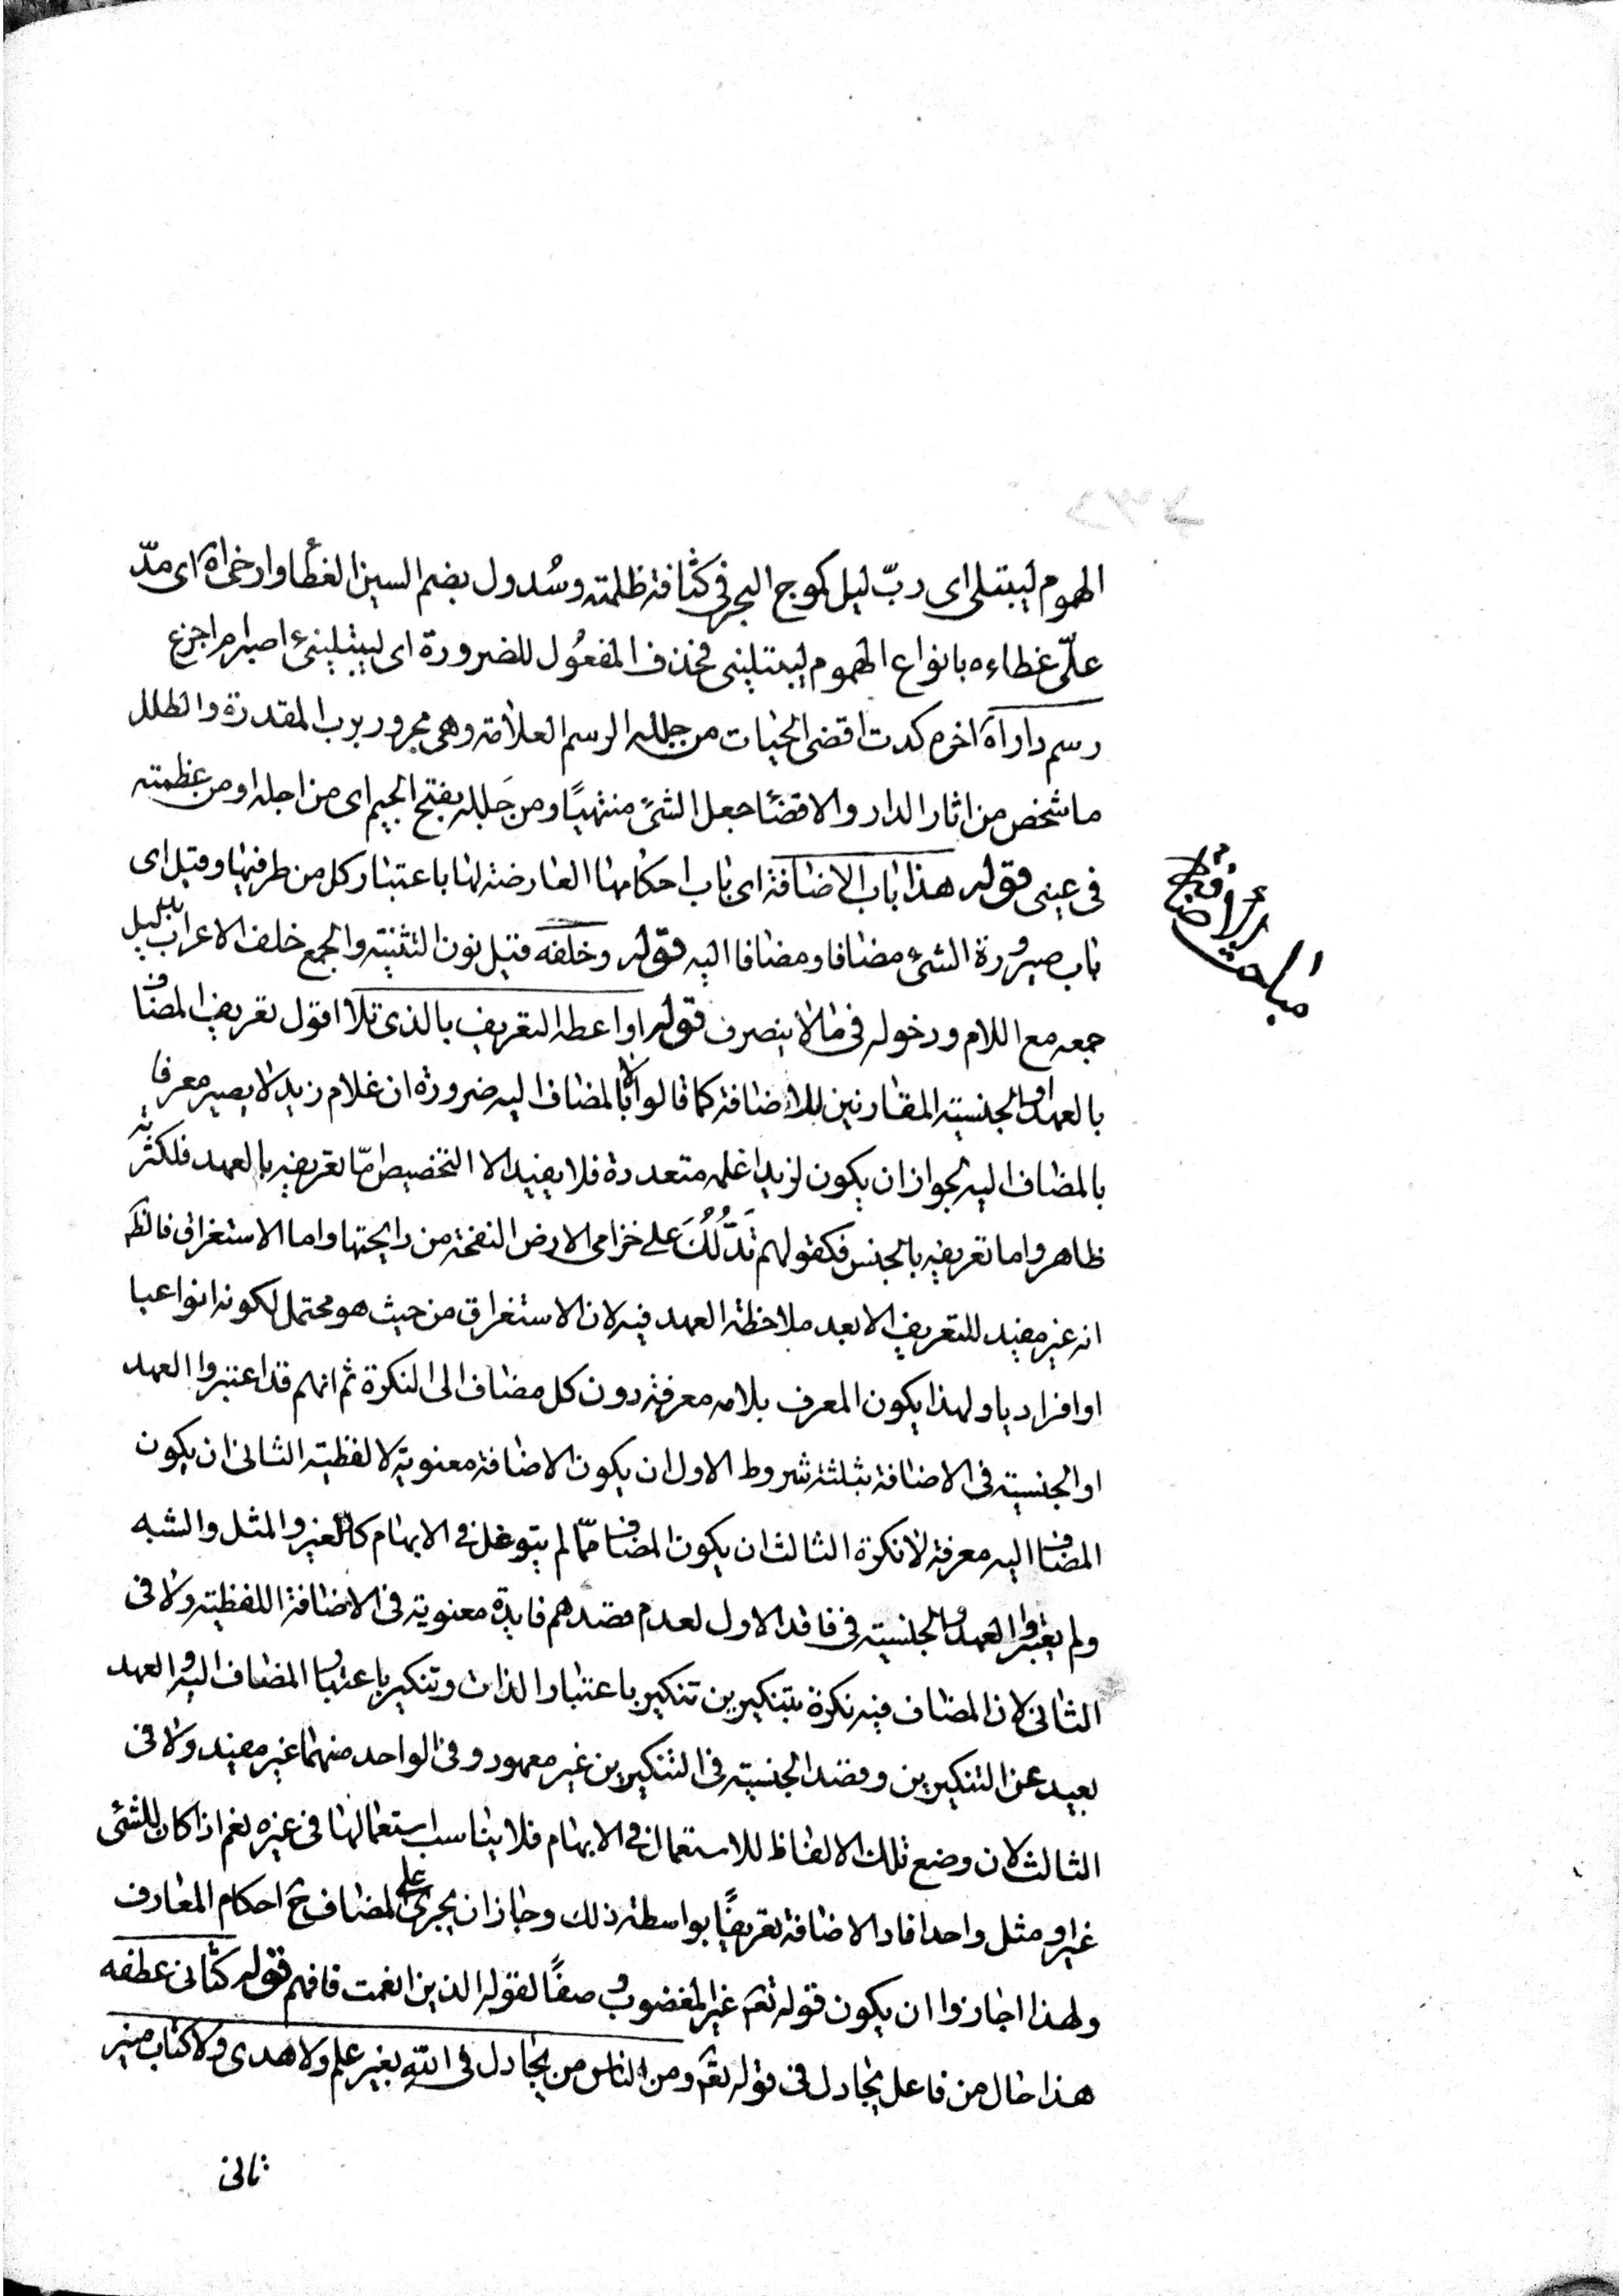 الهموم ليبتلى اى ربّ ليل كموج البحر فى كثافة ظلمته وسُدول بضم السين الغطأ وارخاة اى مدّ
علّى غطاءه بانواع الهموم ليبتلينى فحذف المفعُول للضرورة اى ليبتلينى ء اصبر ام اجزع
رسم دار اه اخره كدت اقضى الحيات من جلله الرسم العلامة وهى مجرور برب المقدرة والطلل
ماشخص من اثار الدار والاقضأ جعل الشئ منتهيًا ومن جَلله بفتح الجيم اى من اجله او من عظمته
فى عينى قوله هذا باب الاضافة اى باب احكامها العارضة لها باعتبار كل من طرفيها وقيل اى
باب صيرورة الشئ مضافا ومضافا اليه قوله وخلفه قيل نون التثنية والجمع خلف الاعراب بدليل
جمعه مع اللام ودخوله فى مالا ينصرف قوله او اعطه التعريف بالذى تلا اقول تعريف المضاف
بالعهد او الجنسية المقارنين للاضافة كما قالوا لا بالمضاف اليه ضرورة ان غلام زيد لا يصير معرفا
بالمضاف اليه لجواز ان يكون لزيد اغلمه متعددة فلا يفيد الا التخصيص امّا تعريفه بالعهد فلكثرته
ظاهر واما تعريفه بالجنس فكقولهم تَدُلُّكَ على خزامى الارض النفحة من رايحتها واما الاستغراق فالظ
انه غير مفيد للتعريف الا بعد ملاحظة العهد فيه لان الاستغراق من حيث هو محتمل لكونه انواعيا
او افراديا ولهذا يكون المعرف بلامه معرفة دون كل مضاف الى النكرة ثم انهم قد اعتبروا العهد
او الجنسية فى الاضافة بثلثة شروط الاول ان يكون الاضافة معنوية لا لفظية الثانى ان يكون
المضاف اليه معرفة لا نكرة الثالث ان يكون المضاف ممّا لم يتوغل فى الابهام كالغير والمثل والشبه
ولم يعتبروا العهد والجنسية فى فاقد الاول لعدم قصدهم فايدة معنوية فى الاضافة اللفظية ولا فى
الثانى لان المضاف فيه نكرة بتنكيرين تنكير باعتبار الذات وتنكير باعتبار المضاف اليه والعهد
بعيد عن التنكيرين وقصد الجنسية فى التنكيرين غير معهود وفى الواحد منهما غير مفيد ولا فى
الثالث لان وضع تلك الالفاظ للاستعمال فى الابهام فلا يناسب استعمالها فى غيره نعم اذا كان للشئ
غير او مثل واحد افاد الاضافة تعريفًا بواسطة ذلك وجاز ان يجرى على المضاف ح احكام المعارف
ولهذا اجازوا ان يكون قوله تعه غير المغضوب وصفًا لقوله الذين انعمت فافهم قوله كثانى عطفه
هذا حال من فاعل يجادل فى قوله تعه ومن الناس من يجادل فى الله بغير علم ولا هدى ولا كتاب منير
ثانى
مباحث الاضافة